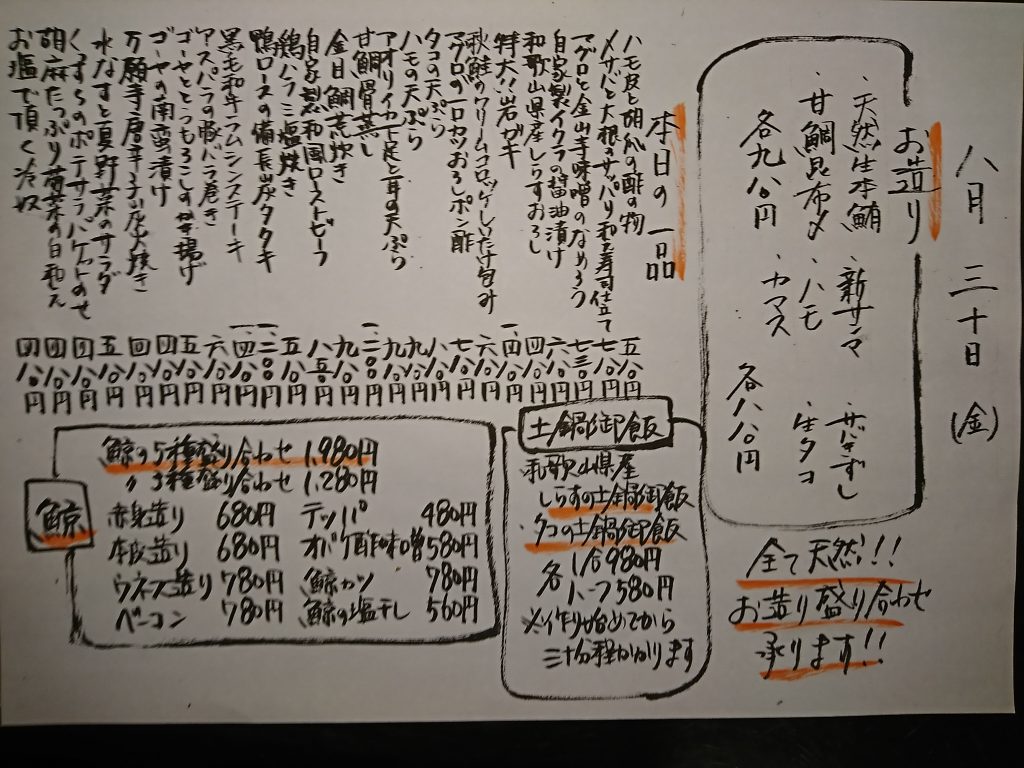 八月三十日(金)
お造り
・天然生本鮪 ・新サンマ
・甘鯛昆布〆 ・ハモ ・生タコ
・カマス
各九八〇円
各八八〇円
全て天然!!
お造り盛り合わせ
承ります!!
本日の一品
ハモ皮と胡瓜の酢の物 五八〇円
〆サバと大根のサッパリ和え寿司仕立て 七八〇円
マグロと金山寺味噌のなめろう 七三〇円
自家製イクラの醤油漬け 六八〇円
和歌山県産しらすおろし
特大!!岩ガキ
秋鮭のクリームコロッケしいたけ包み
マグロの一口カツおろしポン酢
タコの天ぷら
ハモの天ぷら
アオリイカ下足と耳の天ぷら
甘鯛骨蒸し
金目鯛煮炊き
自家製和風ローストビーフ
鶏ハラミ塩焼き
鴨ロースの備長炭タタキ
黒毛和牛ラムシンステーキ
アスパラの豚バラ巻き
ゴーヤととうもろこしのかき揚げ
ゴーヤの南蛮漬け
万願寺唐辛子炭火焼き
水なすと夏野菜のサラダ
くずしのポテサラバケットのせ
胡麻たっぷり 白和え
お塩で頂く冷奴 四八〇円
土鍋御飯
和歌山県産
しらすの土鍋御飯
・タコの土鍋御飯
各 1合980円
ハーフ580円
※作り始めてから
三十分程かかります
鯨
鯨の5種盛り合わせ 1,980円
〃 3種盛り合わせ 1,280円
赤身造り 680円 テッパ 480円
本皮造り 680円 オバケ酢味噌 580円
ウネス造り 780円 鯨カツ 780円
ベーコン 780円 鯨の塩干し 560円